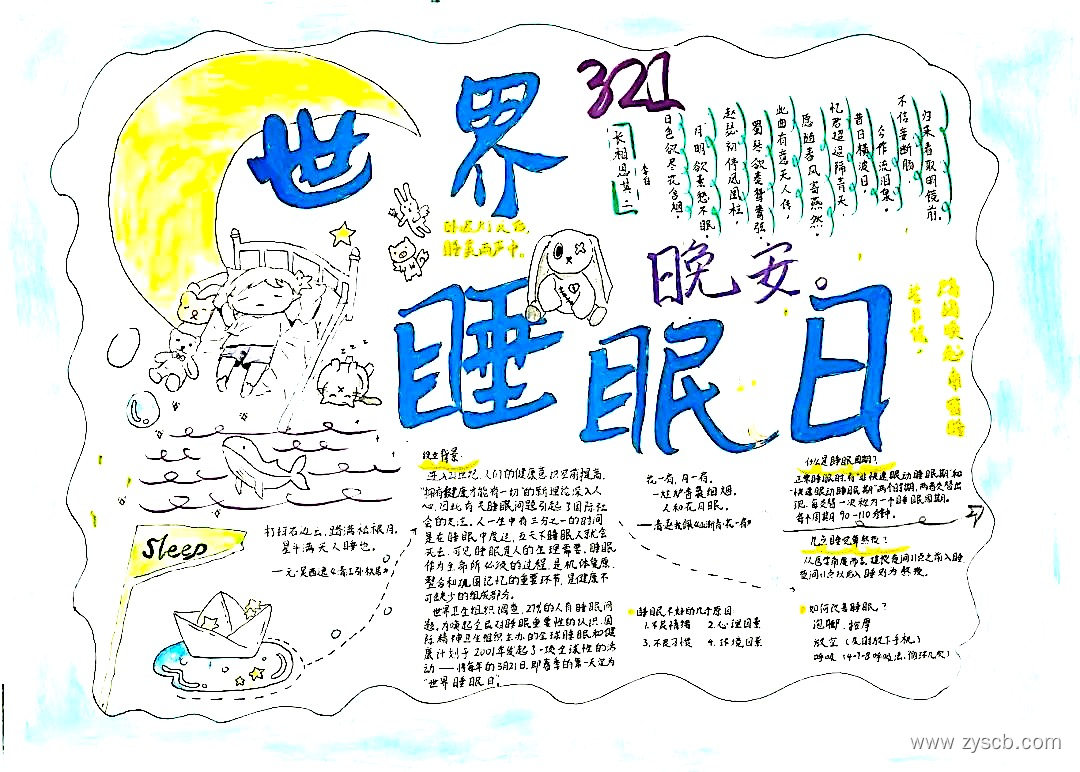 世界
321
睡眠日
晚安。
长相思其二
李白
日色欲尽花含烟，
月明欲素愁不眠。
赵瑟初停凤凰柱，
蜀琴欲奏鸳鸯弦。
此曲有意无人传，
愿随春风寄燕然。
忆君迢迢隔青天，
昔日横波目，
今作流泪泉。
不信妾断肠，
归来看取明镜前。
睡美雨声中。
Sleep
打扫石边云，踏满松根月。
星斗满天人睡也。
设立背景：
进入21世纪，人们的健康意识空前提高，
"拥有健康才能有一切"的新理论深入人
心，因此有关睡眠问题引起了国际社
会的关注。人一生中有三分之一的时间
是在睡眠中度过，五天不睡眠人就会
死去，可见睡眠是人的生理需要。睡眠
作为生命所必须的过程，是机体复原、
整合和巩固记忆的重要环节，是健康不
可缺少的组成部分。
世界卫生组织调查，27%的人有睡眠问
题。为唤起全民对睡眠重要性的认识，国
际精神卫生组织主办的全球睡眠和健
康计划于2001年发起了一项全球性的活
动——将每年的3月21日，即春季的第一天定为
"世界睡眠日"。
花一春，月一春。
一炉香袅细烟。
人和花月眠。
什么是睡眠周期？
正常睡眠时，有"非快速眼动睡眠期"和
"快速眼动睡眠期"两个时期，两者交替出
现，每交替一次称为一个睡眠周期。
每个周期70-110分钟。
几点睡觉算熬夜？
睡眠不好的几个原因
1.不良情绪 2.心理因素
3.不良习惯 4.环境因素
如何改善睡眠？
泡脚、按摩
放空（及时放下手机）
www.zyscb.com